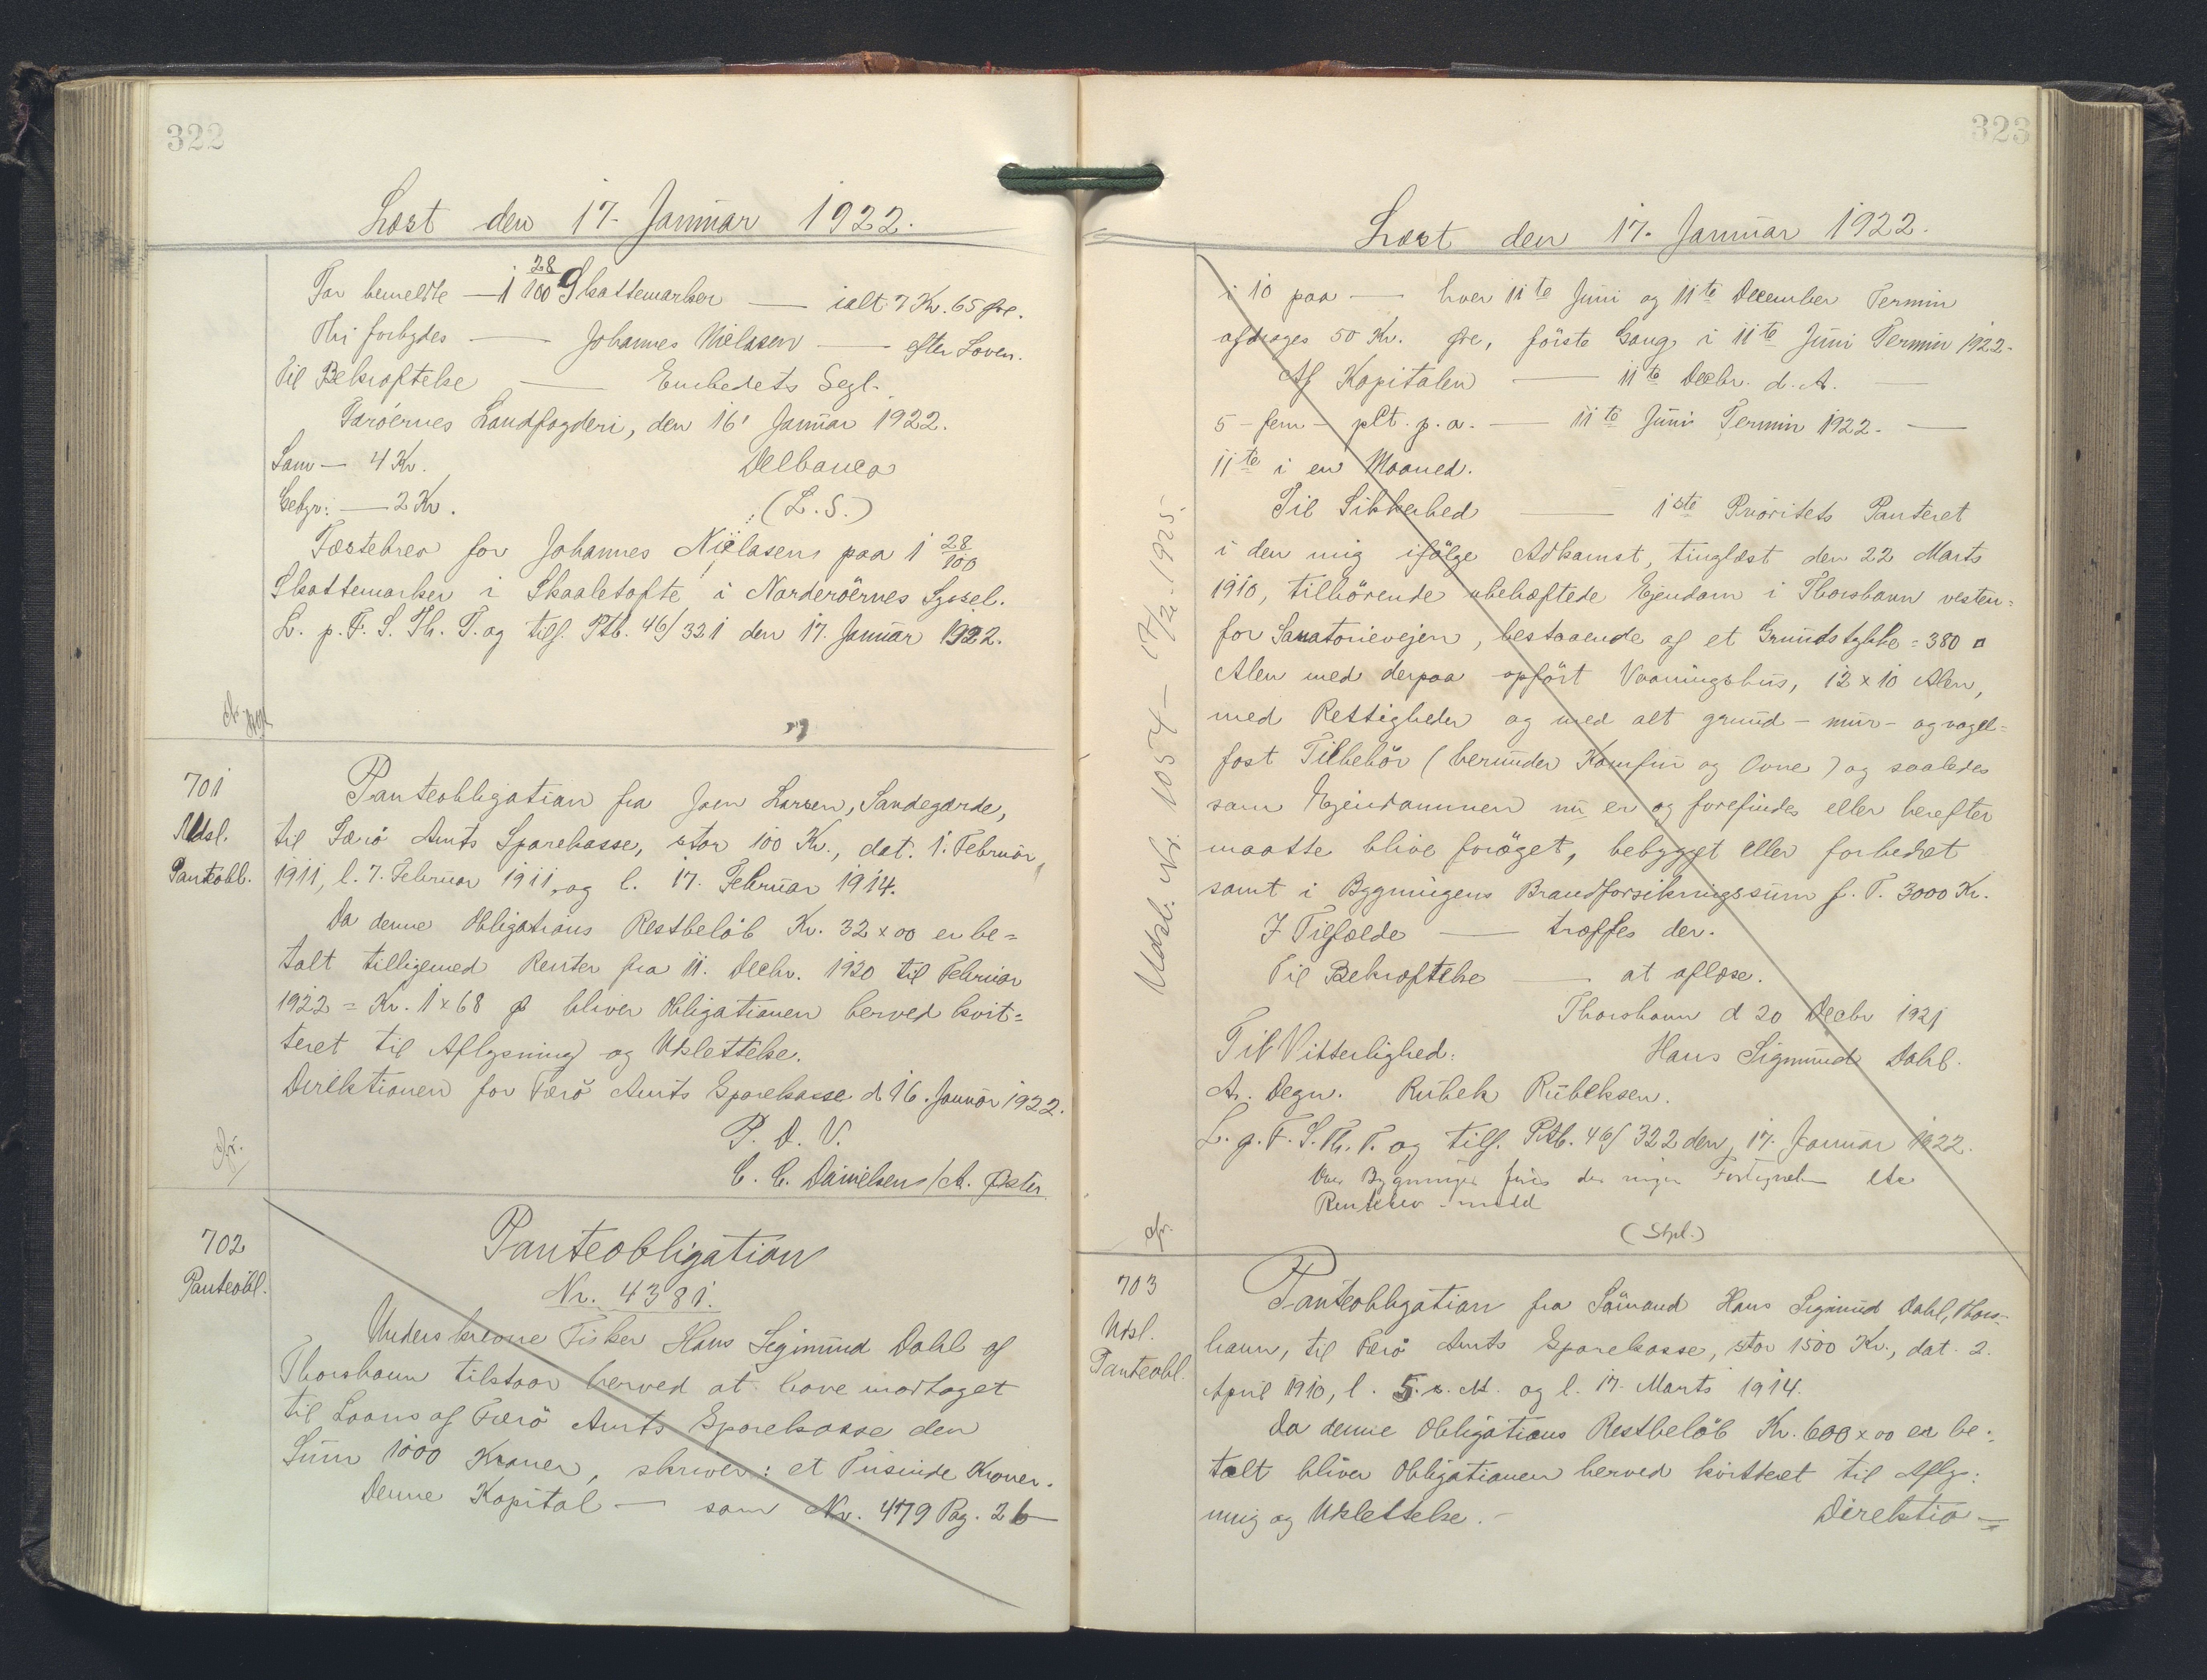 322
Læst den 17. Januar 1922.
For bemeldte — 1 28/100 Skattemarker — ialt 7 Kr. 65 Øre.
Thi forbydes — Johannes Nielasen — efter Loven.
Til Bekræftelse — Embedets Segl.
Færöernes Landfogderi, den 16' Januar 1922.
Løsn — 4 Kr. Delbanco
Gebyr: — 2 Kr. (L. S.)
Fæstebrev for Johannes Nielasen paa 1 28/100
Skattemarker i Skaaletofte i Norderöernes Syssel.
L. p. F. S. Th. T. og tilf. Ptb. 46/321 den 17. Januar 1922.
701
Udsl.
Panteobl.
Panteobligation fra Joen Larsen, Sandegærde,
til Færö Amts Sparekasse, stor 100 Kr., dat. 1. Februar
1911, l. 7. Februar 1911, og l. 17. Februar 1914.
Da denne Obligations Restbelöb Kr. 32 x 00 er be=
talt tilligemed Renter fra 11. Decbr. 1920 til Februar
1922 = Kr. 1 x 68 Ø bliver Obligationen herved kvit=
teret til Aflysning og Udslettelse.
Direktionen for Færö Amts Sparekasse d. 16. Januar 1922.
P. D. V.
C. C. Danielsen / A. Øster
702
Panteobl.
Panteobligation
Nr. 4381.
Underskrevne Fisker Hans Sigimund Dahl af
Thorshavn tilstaar herved at have modtaget
til Laans af Færö Amts Sparekasse den
Sum 1000 Kroner, skriver: et Tusinde Kroner.
Denne Kapital — som Nr. 479 Pag. 26 —
323
Læst den 17. Januar 1922.
i 10 paa — hver 11te Juni og 11te December Termin
afdrages 50 Kr. Øre, förste Gang i 11te Juni Termin 1922.
Af Kapitalen — 11te Decbr. d. A. —
5 - fem - pCt. p. a. — 11te Juni Termin 1922. —
11te i en Maaned.
Til Sikkerhed — 1ste Prioritets Panteret
i den mig ifölge Adkomst, tinglæst den 22 Marts
1910, tilhörende ubehæftede Ejendom i Thorshavn vesten=
for Sanatorievejen, bestaaende af et Grundstykke = 380 □
Alen med derpaa opfört Vaaningshus, 12 x 10 Alen,
med Rettigheder og med alt grund - mur - og nagel=
fast Tilbehör (herunder Komfur og Ovne) og saaledes
som Ejendommen nu er og forefindes eller herefter
maatte blive foröget, bebygget eller forbedret
samt i Bygningens Brandforsikringssum p. T. 3000 Kr.
I Tilfælde — træffes der.
Til Bekræftelse — at aflæse.
Thorshavn d 20 Decbr 1921
Til Vitterlighed: Hans Sigmund Dahl.
A. Degn. Rubek Rubeksen.
L. p. F. S. Th. T. og tilf. Ptb. 46/322 den 17. Januar 1922.
(Stpl.)
Udsl. Nr. 1054 — 17/2 1925.
703
Udsl.
Panteobl.
Panteobligation fra Sömand Hans Sigimund Dahl, Thors-
havn, til Færö Amts Sparekasse, stor 1500 Kr., dat. 2.
April 1910, l. 5. s. M. og l. 17. Marts 1914.
Da denne Obligations Restbelöb Kr. 600 x 00 er be=
talt bliver Obligationen herved kvitteret til Afly=
ning og Udslettelse. — Direktio=